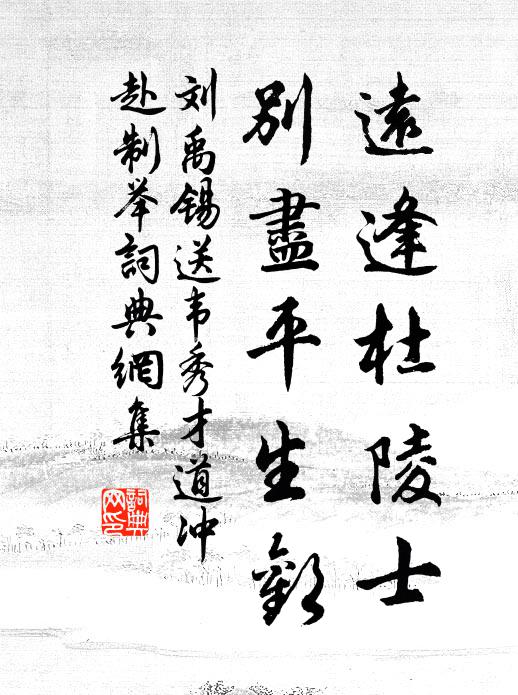 遠逢杜陵士
別盡平生歡
刘禹锡送韦秀才道冲
赴制举詞典網集
詞典
网印